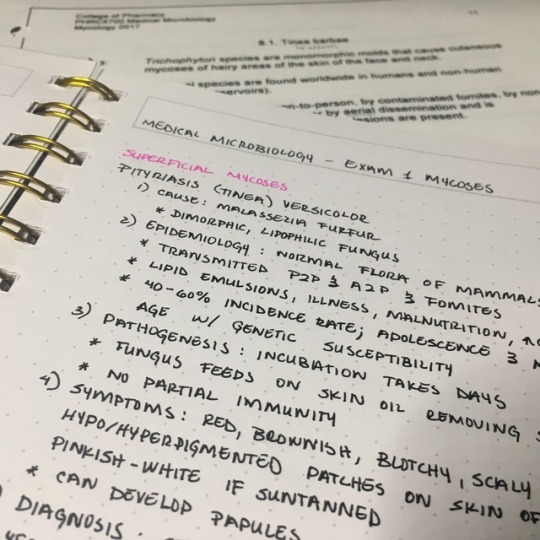 College of Pharmacy
Medical Microbiology
Mycology 2017
8.1. Tinea barbae
Trichophyton species are monomorphic molds that cause cutaneous
mycoses of hairy areas of the skin of the face and neck.
species are found worldwide in humans and non-human
-to-person, by contaminated fomites, by
by aerial dissemination and is
are present.
MEDICAL MICROBIOLOGY - EXAM 1 MYCOSES
SUPERFICIAL MYCOSES
PITYRIASIS (TINEA) VERSICOLOR
1) CAUSE: MALASSEZIA FURFUR
* DIMORPHIC, LIPOPHILIC FUNGUS
2) EPIDEMIOLOGY: NORMAL FLORA OF MAMMALS
* TRANSMITTED P2P & A2P & FOMITES
* LIPID EMULSIONS, ILLNESS, MALNUTRITION,
* 40-60% INCIDENCE RATE; ADOLESCENCE &
AGE W/ GENETIC SUSCEPTIBILITY
3) PATHOGENESIS: INCUBATION TAKES DAYS
* FUNGUS FEEDS ON SKIN OIL REMOVING
* NO PARTIAL IMMUNITY
4) SYMPTOMS: RED, BROWNISH, BLOTCHY, SCALY
HYPO/HYPERDIGMENTED PATCHES ON SKIN OF
PINKISH-WHITE IF SUNTANNED
* CAN DEVELOP PAPULES
DIAGNOSIS: